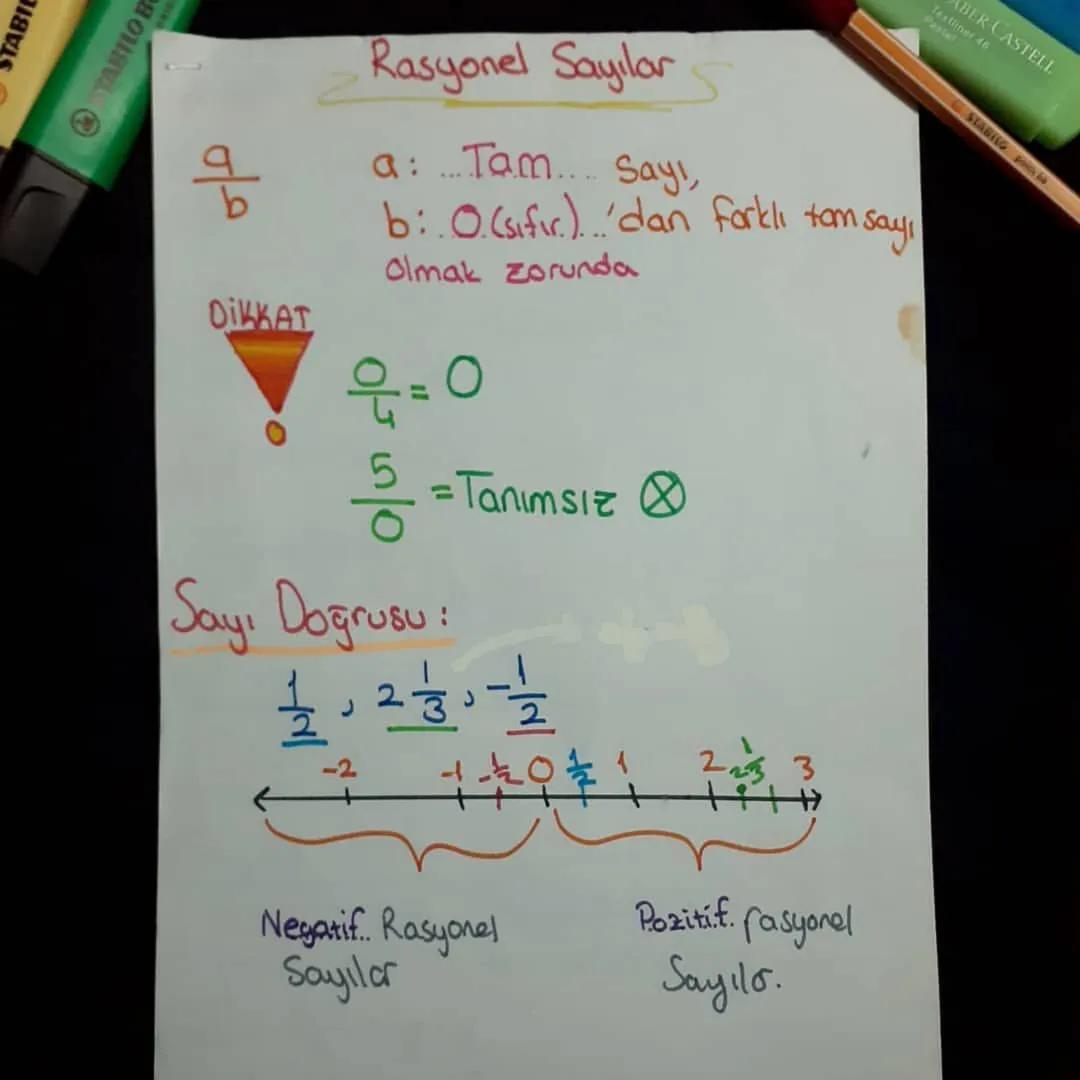 STABIL
STABILO BO
ABER CASTELL
Textliner 46
Pastel
STABILO
Rasyonel Sayılar
a/b
a: ...Tam.... sayı,
b: .0.(sıfır.)...'dan farklı tam sayı
olmak zorunda
DİKKAT
0/4 = 0
5/0 = Tanımsız ⊗
Sayı Doğrusu :
1/2 , 2 1/3 , -1/2
-2 -1 -1/2 0 1/2 1 2 2 1/3 3
Negatif.. Rasyonel
Sayılar
Pozitif. rasyonel
Sayıla.